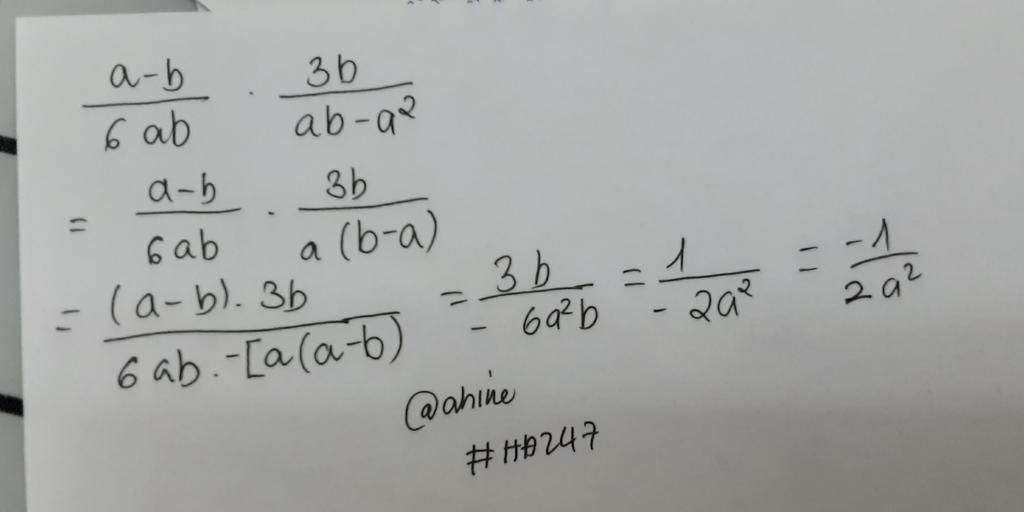 (a-b)/(6ab) · (3b)/(ab-a²)
= (a-b)/(6ab) · (3b)/(a(b-a))
= ((a-b).3b)/(6ab.-[a(a-b)) = (3b)/(-6a²b) = 1/(-2a²) = (-1)/(2a²)
@ahine
#HĐ247